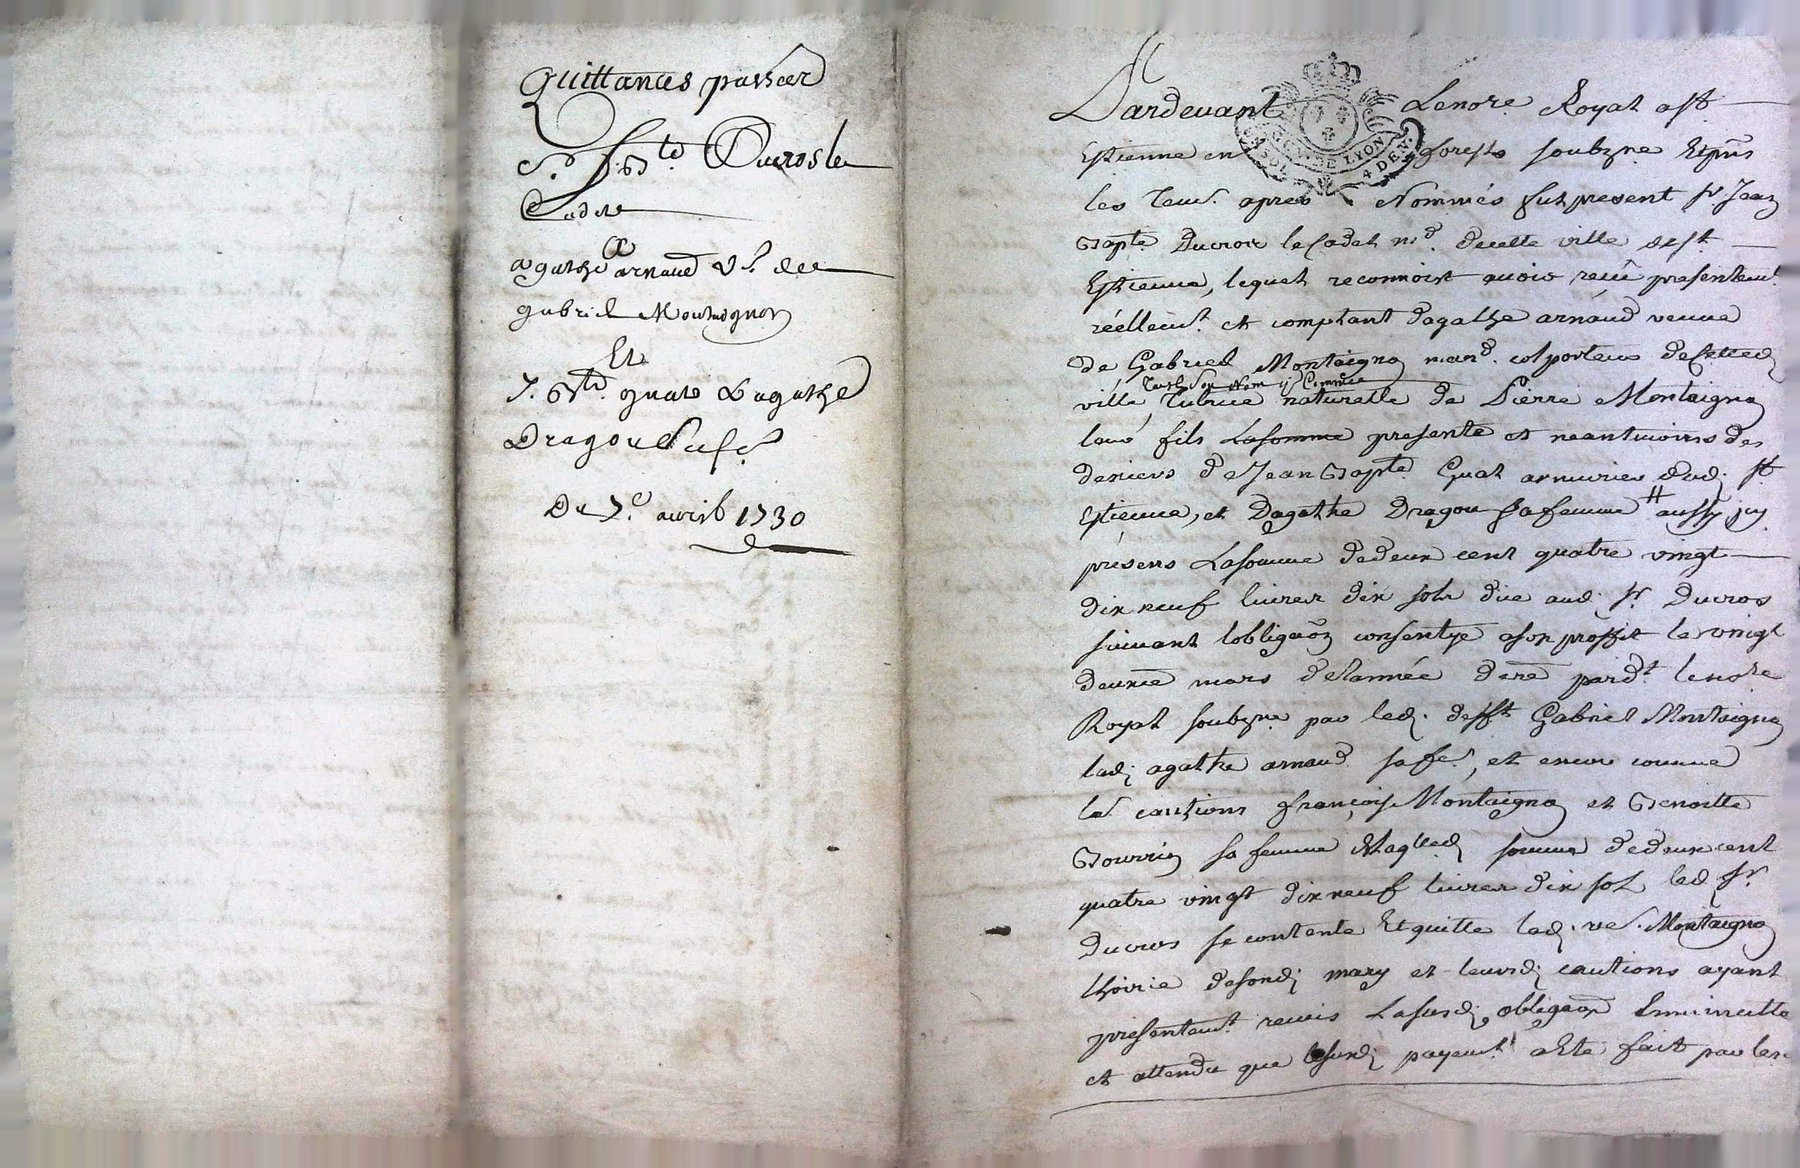 Quittances passées
S.r J. B.te Ducros le
Cadet
a
agathe arnaud v.e de
gabriel Montaignon
Et
J. B.te quat & agathe
Dragon
Du 7.e avril 1730
Pardevant Le no.re Royal a S.t
Estienne en forests soubzne Et
les apres Nommés fut present S.r Jean
Bapte Ducros le Cadet m.d de cette ville de S.t
Estienne, lequel reconnoist avoir receu presentem.t
réellem.t et comptant d'agathe arnaud veuve
de Gabriel Montaigno mar.d colporteur de cetted
ville, tant en son Nom que Comme
Tutrice naturelle de Pierre Montaigno
leur fils La somme presente et neantmoins des
deniers de Jean Bapte Quat armurier dud S.t
Estienne, et D'agathe Dragon sa femme aussy icy
présens La somme de deux cent quatre vingt
dix neuf livres dix sols due aud S.r Ducros
suivant l'obligaõn consentye a son proffit le vingt
deuxie mars de l'année dere pard.t le no.re
Royal soubzne par led. deff.t Gabriel Montaigno
lad agathe arnaud sa fe, et encore comme
cautions françois Montaigno et Benoitte
Bourrin sa femme De laq lled somme de deux cent
quatre vingt dix neuf livres dix sol led S.r
Ducros se contente Et quitte lad. ve. Montaigno
L'hoirie de sond mary et leursd cautions ayant
presentem.t remis La susd obligaõn
et attendu que le susd payem.t a Eté fait par les
GEN. DE LYON
4 DEN.